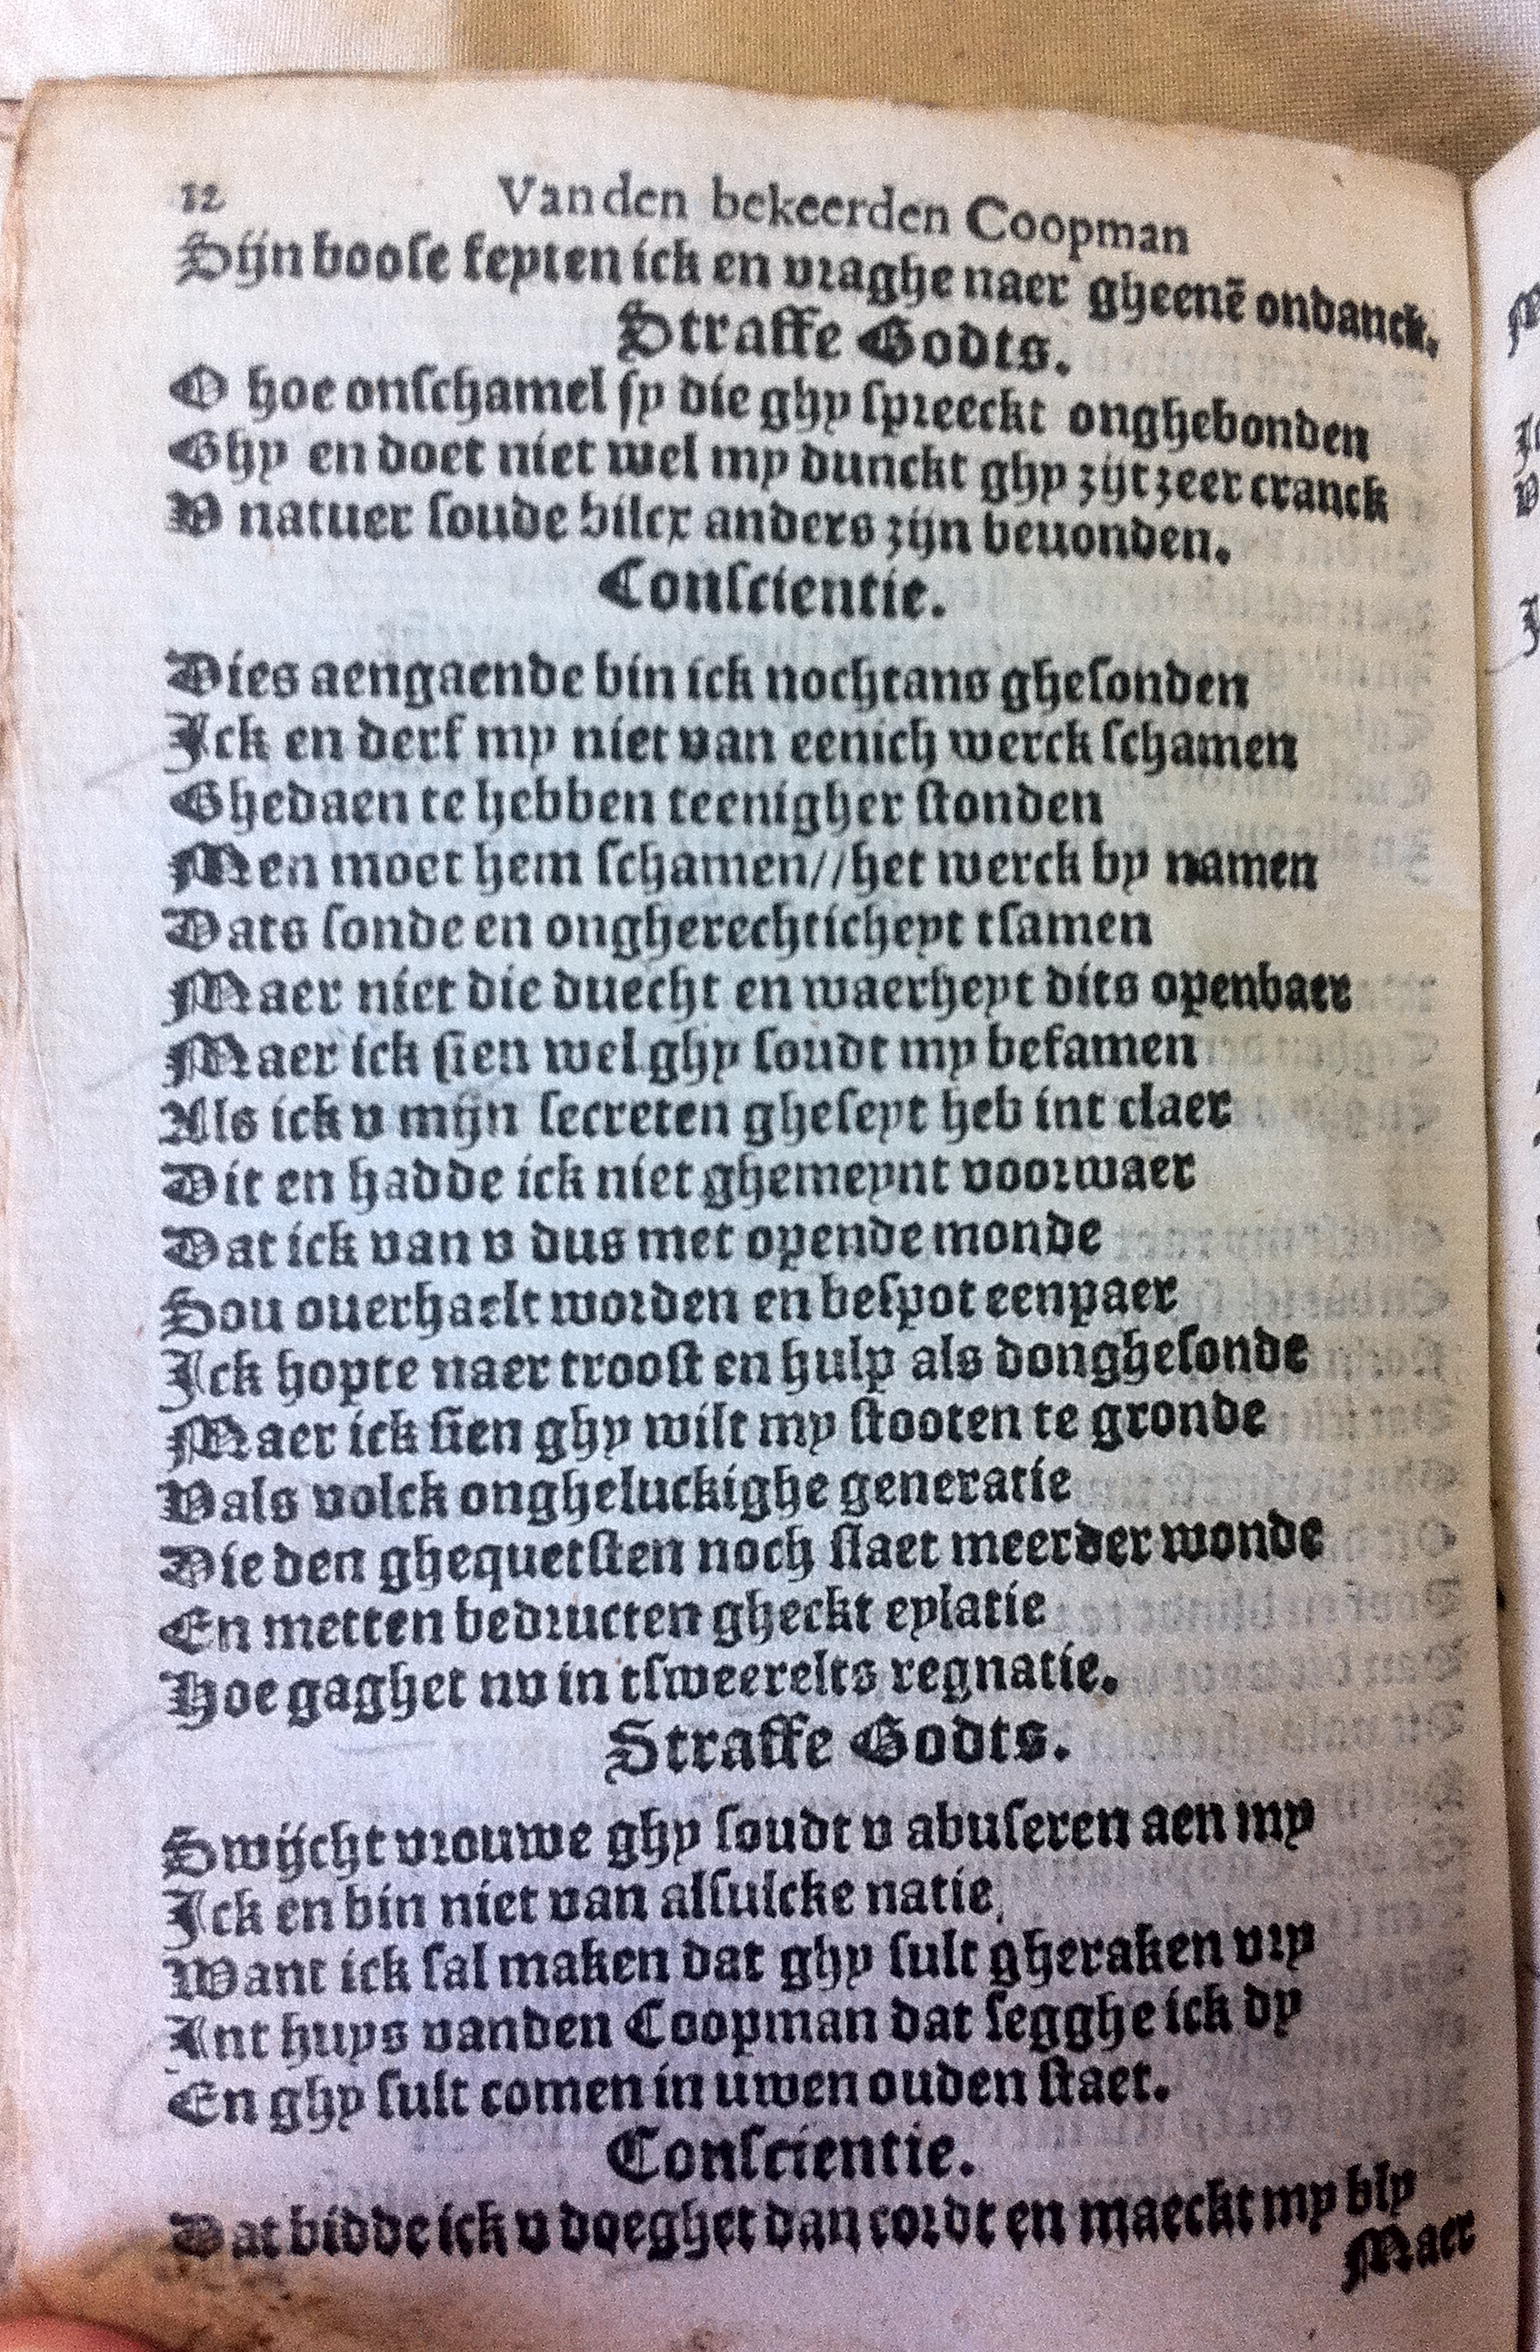 12 Van den bekeerden Coopman
Sijn boose feyten ick en vraghe naer gheenē ondanck.
Straffe Godts.
O hoe onschamel sy die ghy spreeckt onghebonden
Ghy en doet niet wel my dunckt ghy zijt zeer cranck
V natuer soude bilcx anders zijn beuonden.
Conscientie.
Dies aengaende bin ick nochtans ghesonden
Ick en derf my niet van eenich werck schamen
Ghedaen te hebben teenigher stonden
Men moet hem schamen//het werck by namen
Dats sonde en ongherechticheyt tsamen
Maer niet die duecht en waerheyt dits openbaer
Maer ick sien wel ghy soudt my befamen
Als ick v mijn secreten gheseyt heb int claer
Dit en hadde ick niet ghemeynt voorwaer
Dat ick van v dus met opende monde
Sou ouerhaelt worden en bespot eenpaer
Ick hopte naer troost en hulp als donghesonde
Maer ick sien ghy wilt my stooten te gronde
Vals volck ongheluckighe generatie
Die den ghequetsten noch slaet meerder wonde
En metten bedructen gheckt eylatie
Hoe gaghet nv in tsweerelts regnatie.
Straffe Godts.
Swijcht vrouwe ghy soudt v abuseren aen my
Ick en bin niet van alsulcke natie,
Want ick sal maken dat ghy sult gheraken vry
Int huys vanden Coopman dat segghe ick dy
En ghy sult comen in uwen ouden staet.
Conscientie.
Dat bidde ick v doeghet dan cordt en maeckt my bly
Maer